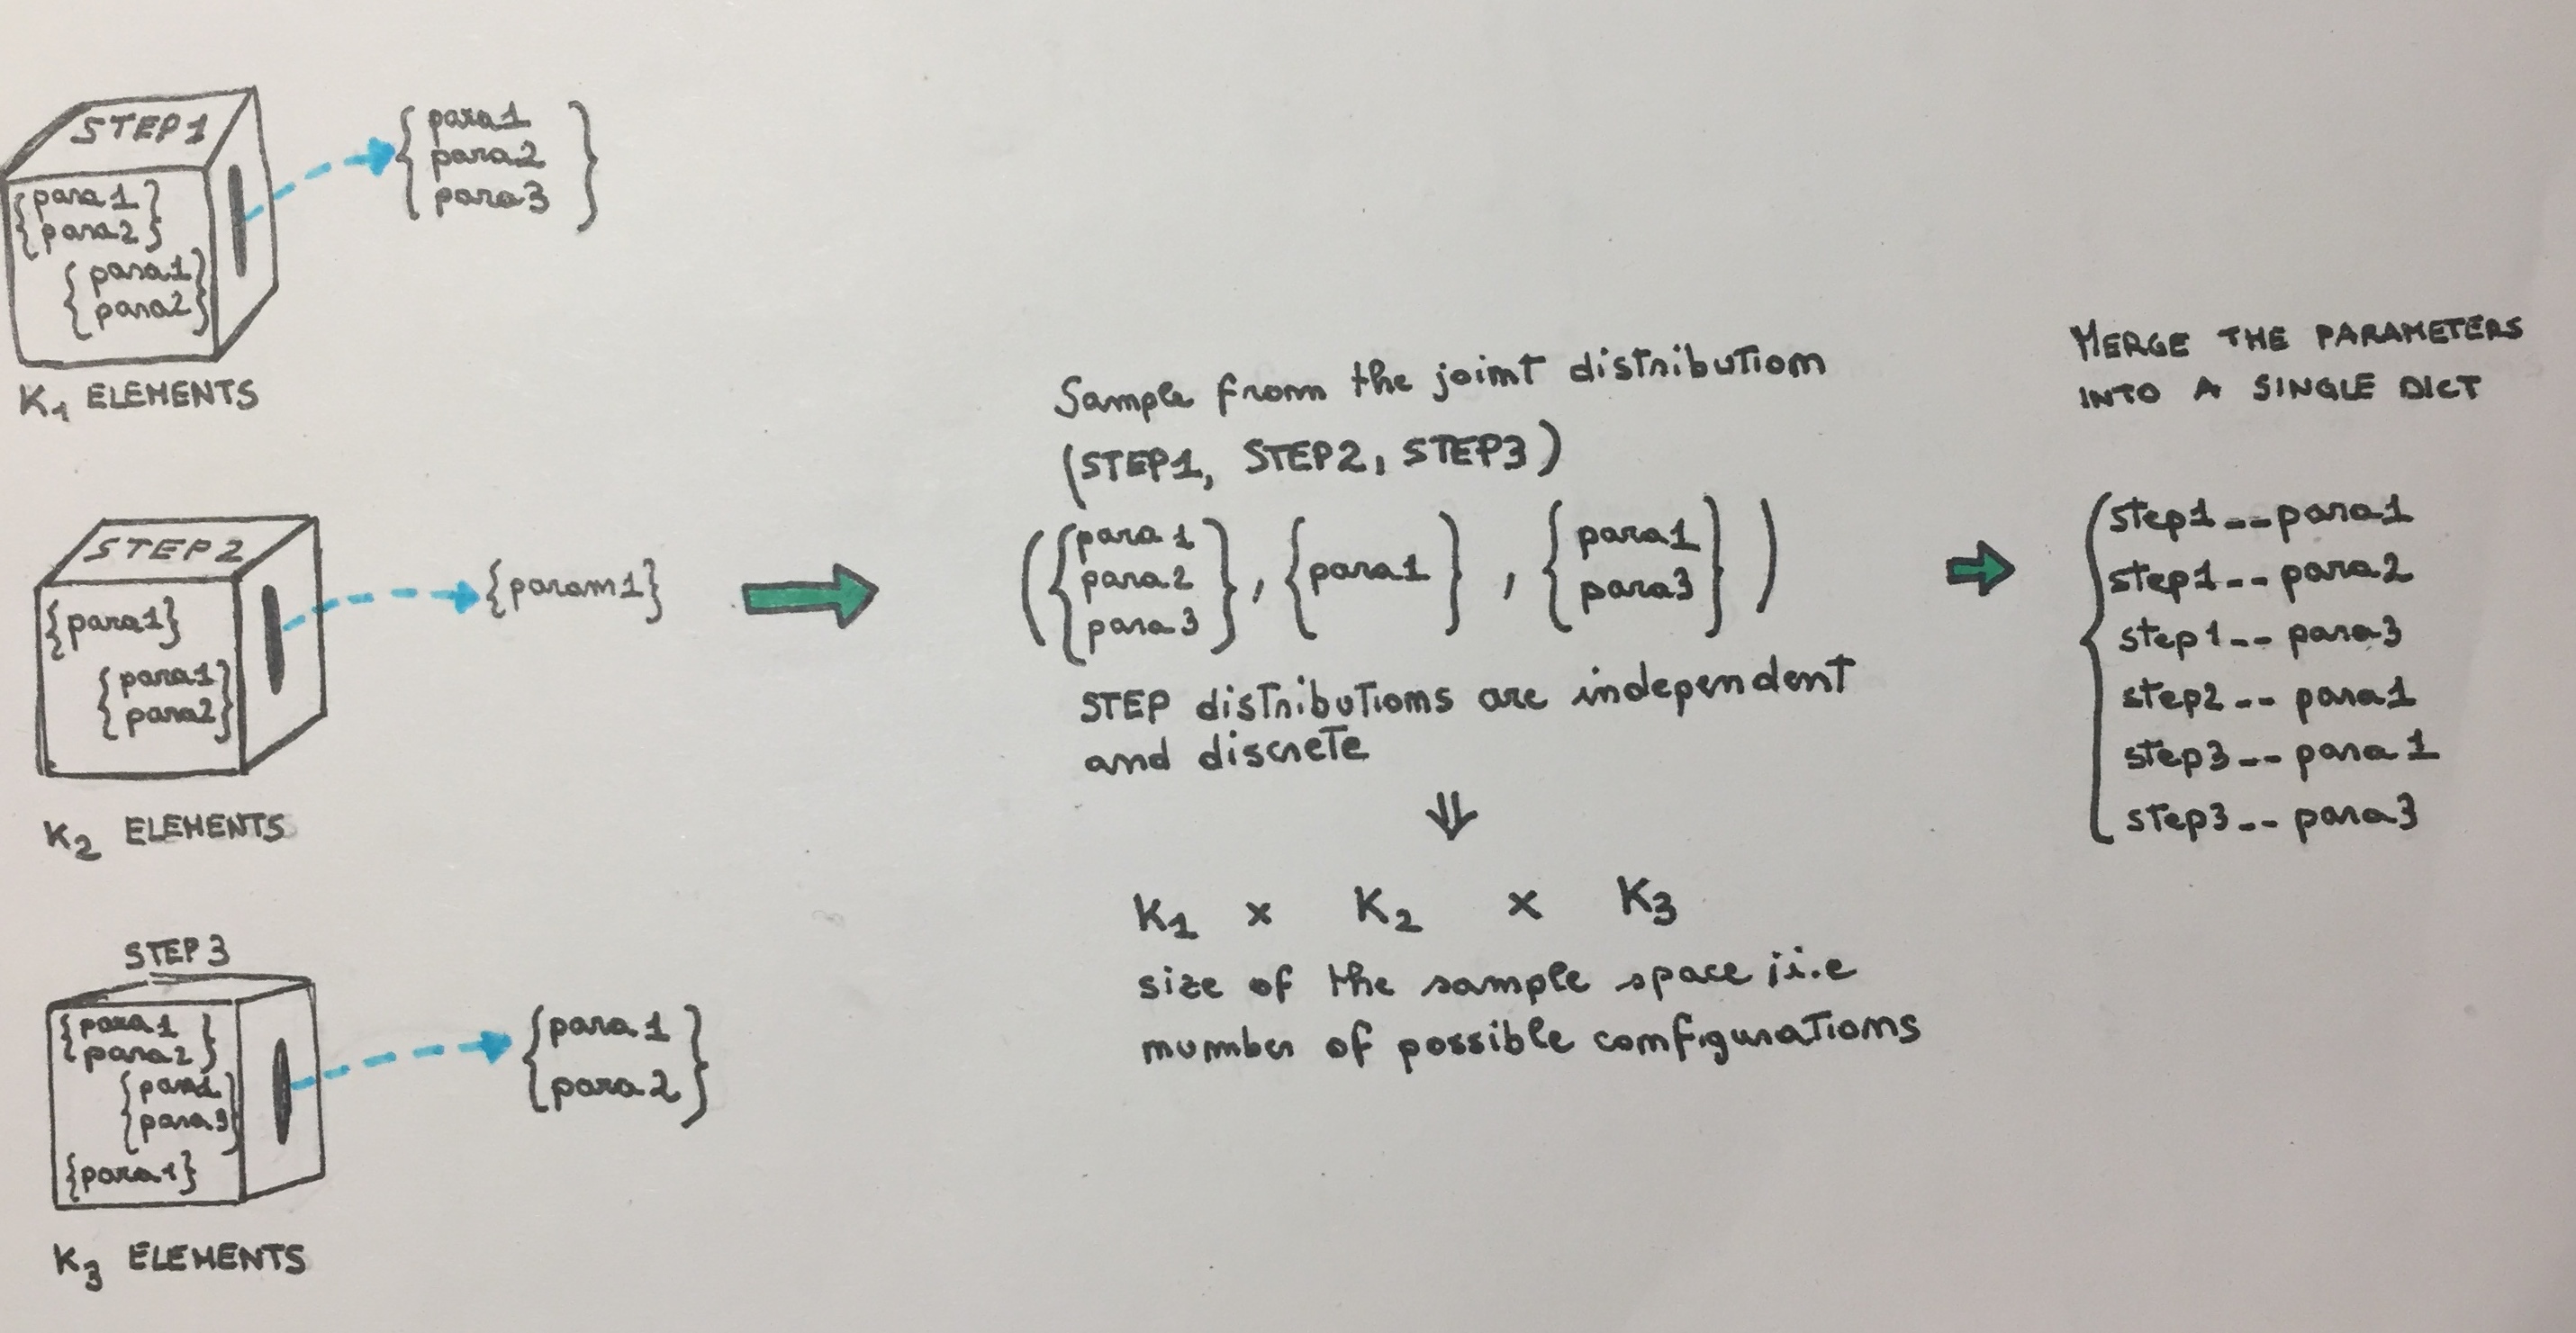 STEP1
{para1
para2}
{para1
para2}
K1 ELEMENTS
{para1
para2
para3}
STEP2
{para1}
{para1
para2}
K2 ELEMENTS
{param1}
STEP3
{para1
para2}
{para1
para3}
{para1}
K3 ELEMENTS
{para1
para2}
Sample from the joint distribution
(STEP1, STEP2, STEP3)
({para1
para2
para3}, {para1}, {para1
para3})
STEP distributions are independent
and discrete
⇓
K1 x K2 x K3
size of the sample space ; i.e
number of possible configurations
MERGE THE PARAMETERS
INTO A SINGLE DICT
{step1__para1
step1__para2
step1__para3
step2__para1
step3__para1
step3__para3